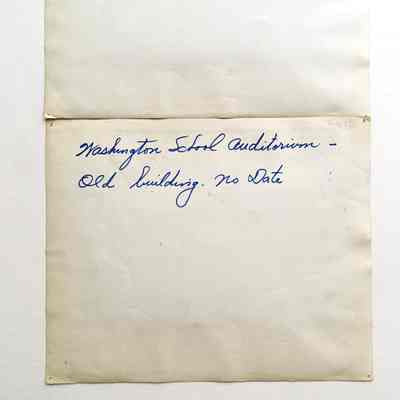 Washington School Auditorium -
Old building. no Date